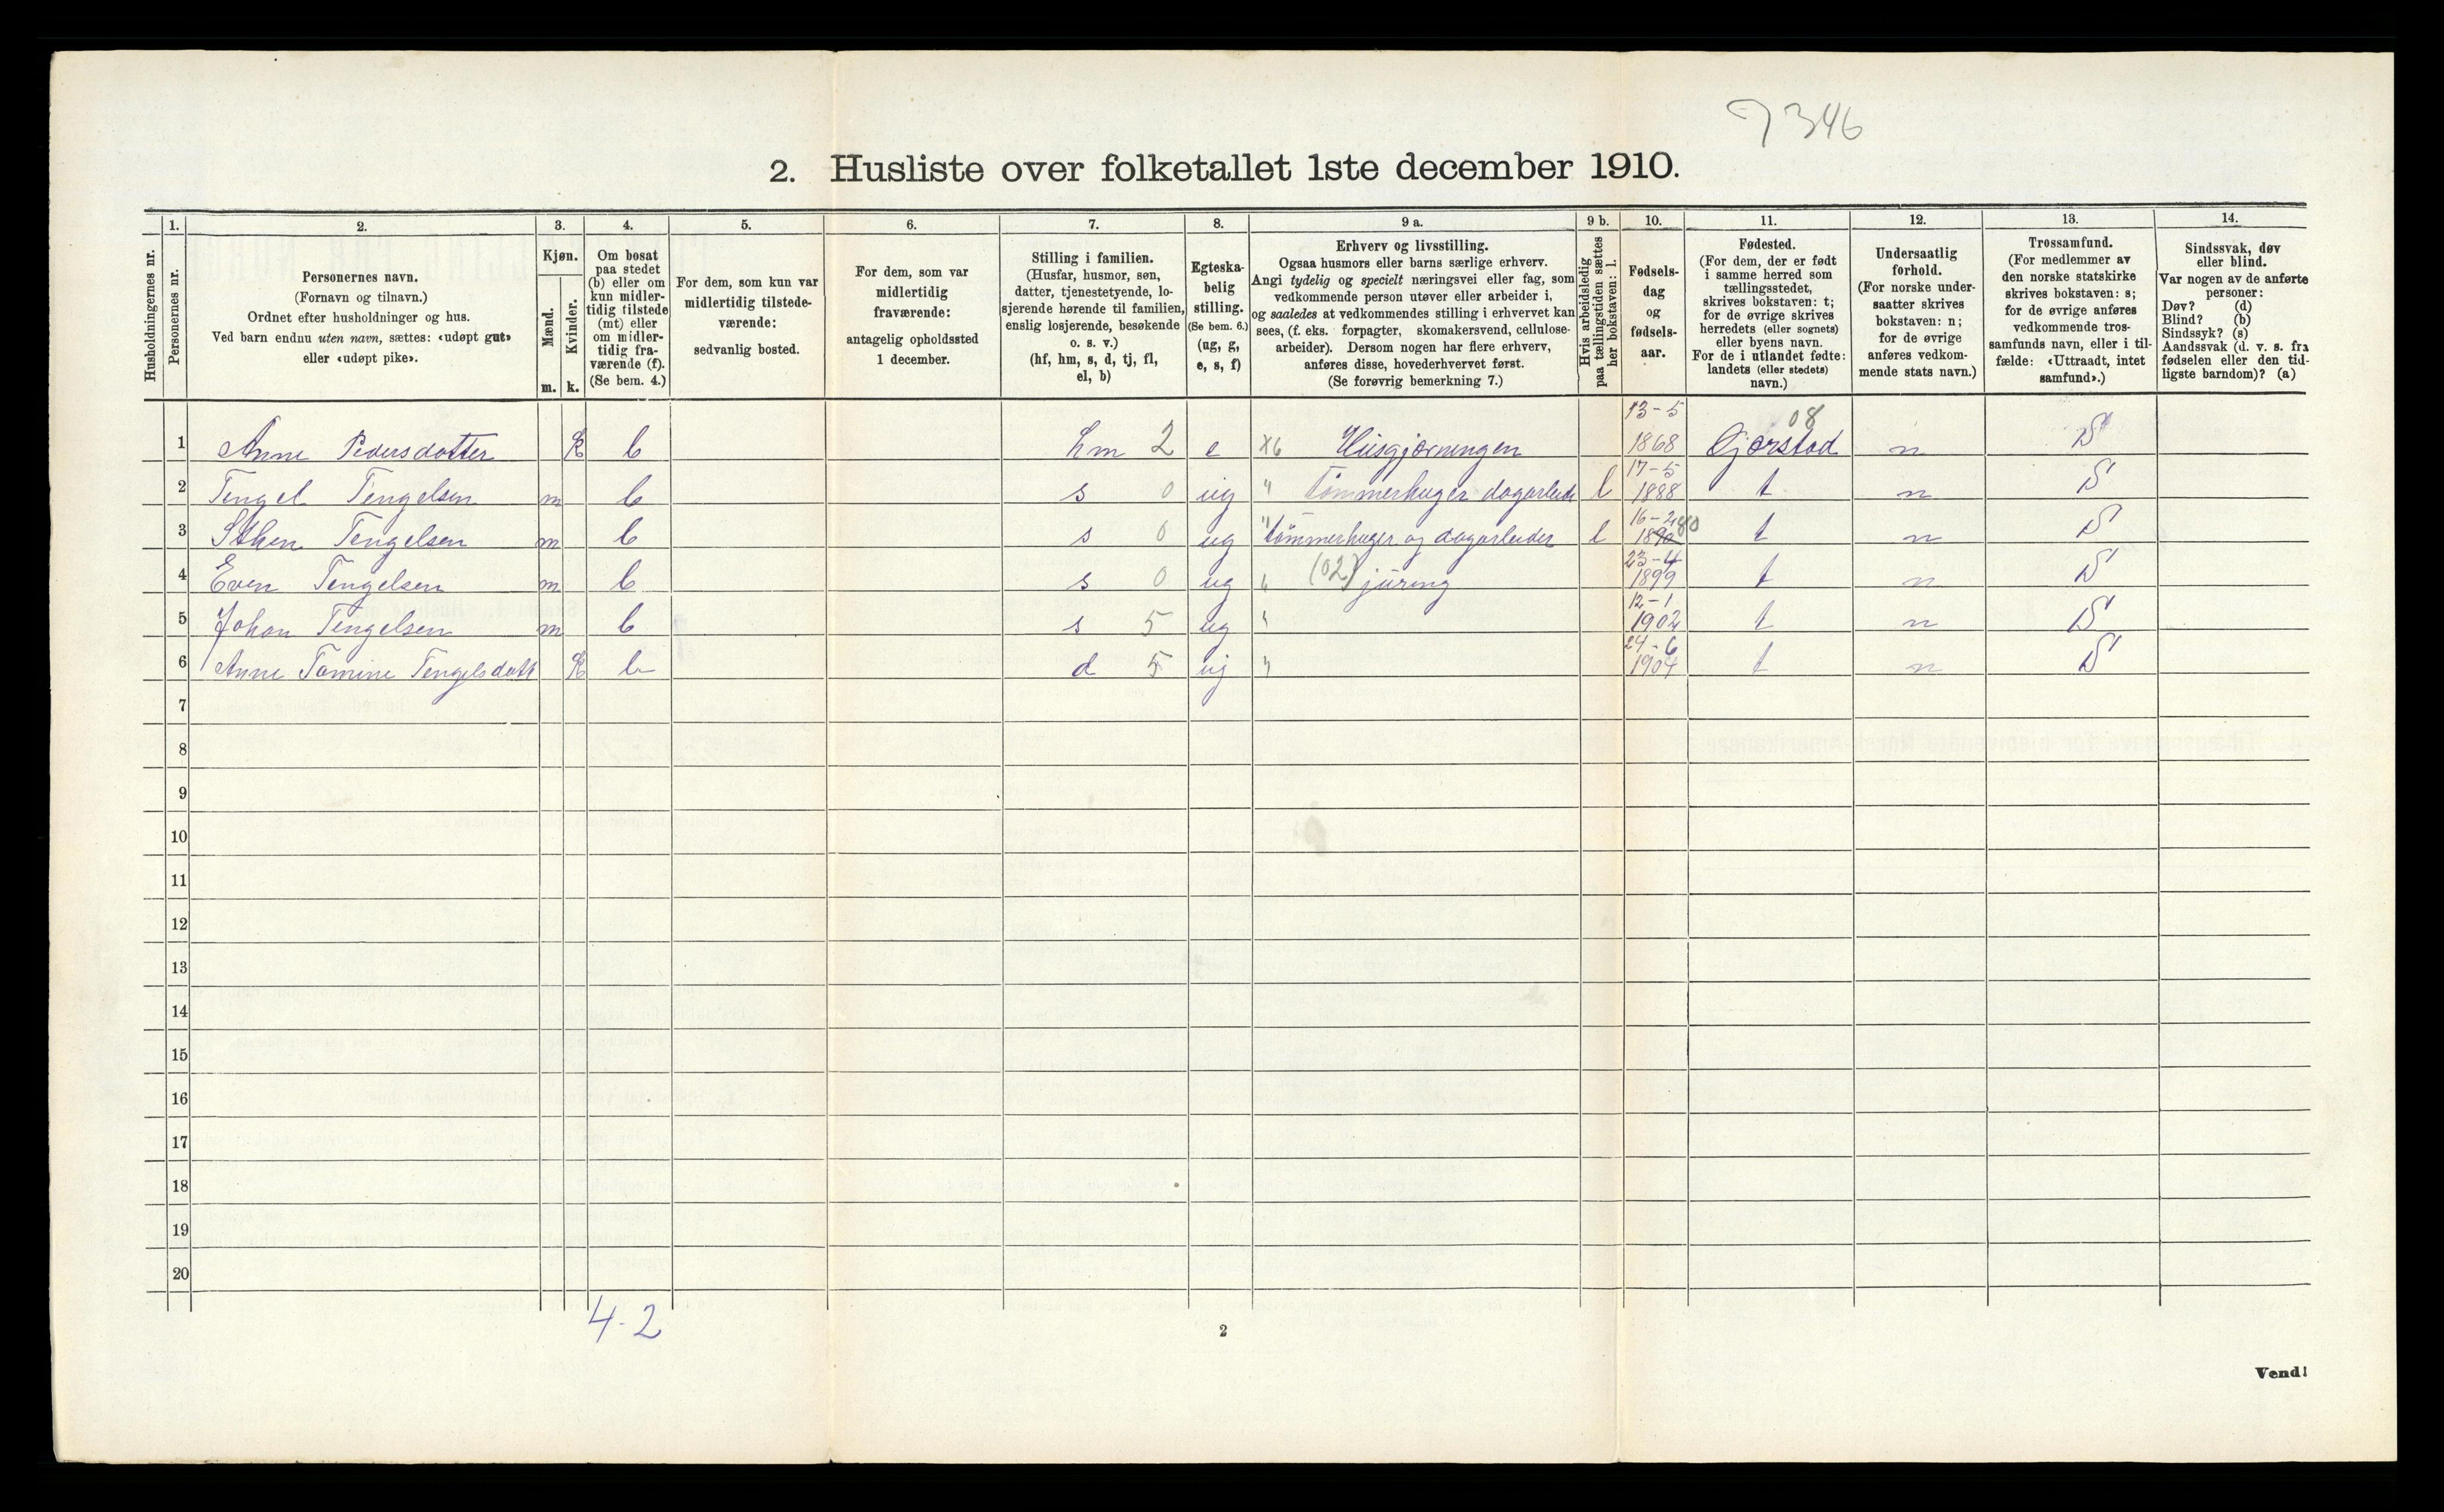 7346
2. Husliste over folketallet 1ste december 1910.
Husholdningernes nr.
1. Personernes nr.
2. Personernes navn.
(Fornavn og tilnavn.)
Ordnet efter husholdninger og hus.
Ved barn endnu uten navn, sættes: «udøpt gut»
eller «udøpt pike».
3. Kjøn.
Mænd. m.
Kvinder. k.
4. Om bosat
paa stedet
(b) eller om
kun midler-
tidig tilstede
(mt) eller
om midler-
tidig fra-
værende (f).
(Se bem. 4.)
5. For dem, som kun var
midlertidig tilstede-
værende:
sedvanlig bosted.
6. For dem, som var
midlertidig
fraværende:
antagelig opholdssted
1 december.
7. Stilling i familien.
(Husfar, husmor, søn,
datter, tjenestetyende, lo-
sjerende hørende til familien,
enslig losjerende, besøkende
o. s. v.)
(hf, hm, s, d, tj, fl,
el, b)
8. Egteska-
belig
stilling.
(Se bem. 6.)
(ug, g,
e, s, f)
9 a. Erhverv og livsstilling.
Ogsaa husmors eller barns særlige erhverv.
Angi tydelig og specielt næringsvei eller fag, som
vedkommende person utøver eller arbeider i,
og saaledes at vedkommendes stilling i erhvervet kan
sees, (f. eks. forpagter, skomakersvend, cellulose-
arbeider). Dersom nogen har flere erhverv,
anføres disse, hovederhvervet først.
(Se forøvrig bemerkning 7.)
9 b. Hvis arbeidsledig
paa tællingstiden sættes
her bokstaven: l.
10. Fødsels-
dag
og
fødsels-
aar.
11. Fødested.
(For dem, der er født
i samme herred som
tællingsstedet,
skrives bokstaven: t;
for de øvrige skrives
herredets (eller sognets)
eller byens navn.
For de i utlandet fødte:
landets (eller stedets)
navn.)
12. Undersaatlig
forhold.
(For norske under-
saatter skrives
bokstaven: n;
for de øvrige
anføres vedkom-
mende stats navn.)
13. Trossamfund.
(For medlemmer av
den norske statskirke
skrives bokstaven: s;
for de øvrige anføres
vedkommende tros-
samfunds navn, eller i til-
fælde: «Uttraadt, intet
samfund».)
14. Sindssvak, døv
eller blind.
Var nogen av de anførte
personer:
Døv? (d)
Blind? (b)
Sindssyk? (s)
Aandssvak (d. v. s. fra
fødselen eller den tid-
ligste barndom)? (a)
1 Anne Pedersdatter K b hm 2 e X6 Husgjerningen 13-5 1868 Gjerstad 08 n S
2 Tengel Tengelsen m b s 0 ug " tømmerhuger dagarbeide l 17-5 1888 t n S
3 Tengelsen m b s 0 ug " tømmerhuger og dagarbeider l 16-2 1890 80 t n S
4 Even Tengelsen m b s 0 ug " (02) 23-4 1899 t n S
5 Johan Tengelsen m b s 5 ug " 12-1 1902 t n S
6 Anne Tomine Tengelsdatt K b d 5 ug " 24-6 1904 t n S
7
8
9
10
11
12
13
14
15
16
17
18
19
20
4-2
2
Vend!